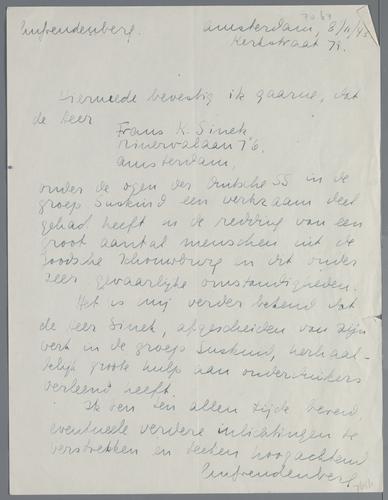 Emfreudenberg. Amsterdam, 8/11/45
Kerkstraat 79.
Hiermede bevestig ik gaarne, dat
de heer
Frans K. Sinek
Minervalaan 76.
Amsterdam,
onder de ogen der Duitsche SS in de
groep Suskind een werkzaam deel
gehad heeft in de redding van een
groot aantal menschen uit de
Joodsche Schouwburg en dit onder
zeer gevaarlijke omstandigheden.
Het is mij verder bekend dat
de heer Sinek, afgescheiden van zijn
werk in de groep Suskind, herhaal-
delijk groote hulp aan onderduikers
verleend heeft.
Ik ben ten allen tijde bereid
eventueele verdere inlichtingen te
verstrekken en teeken hoogachtend
Emfreudenberg